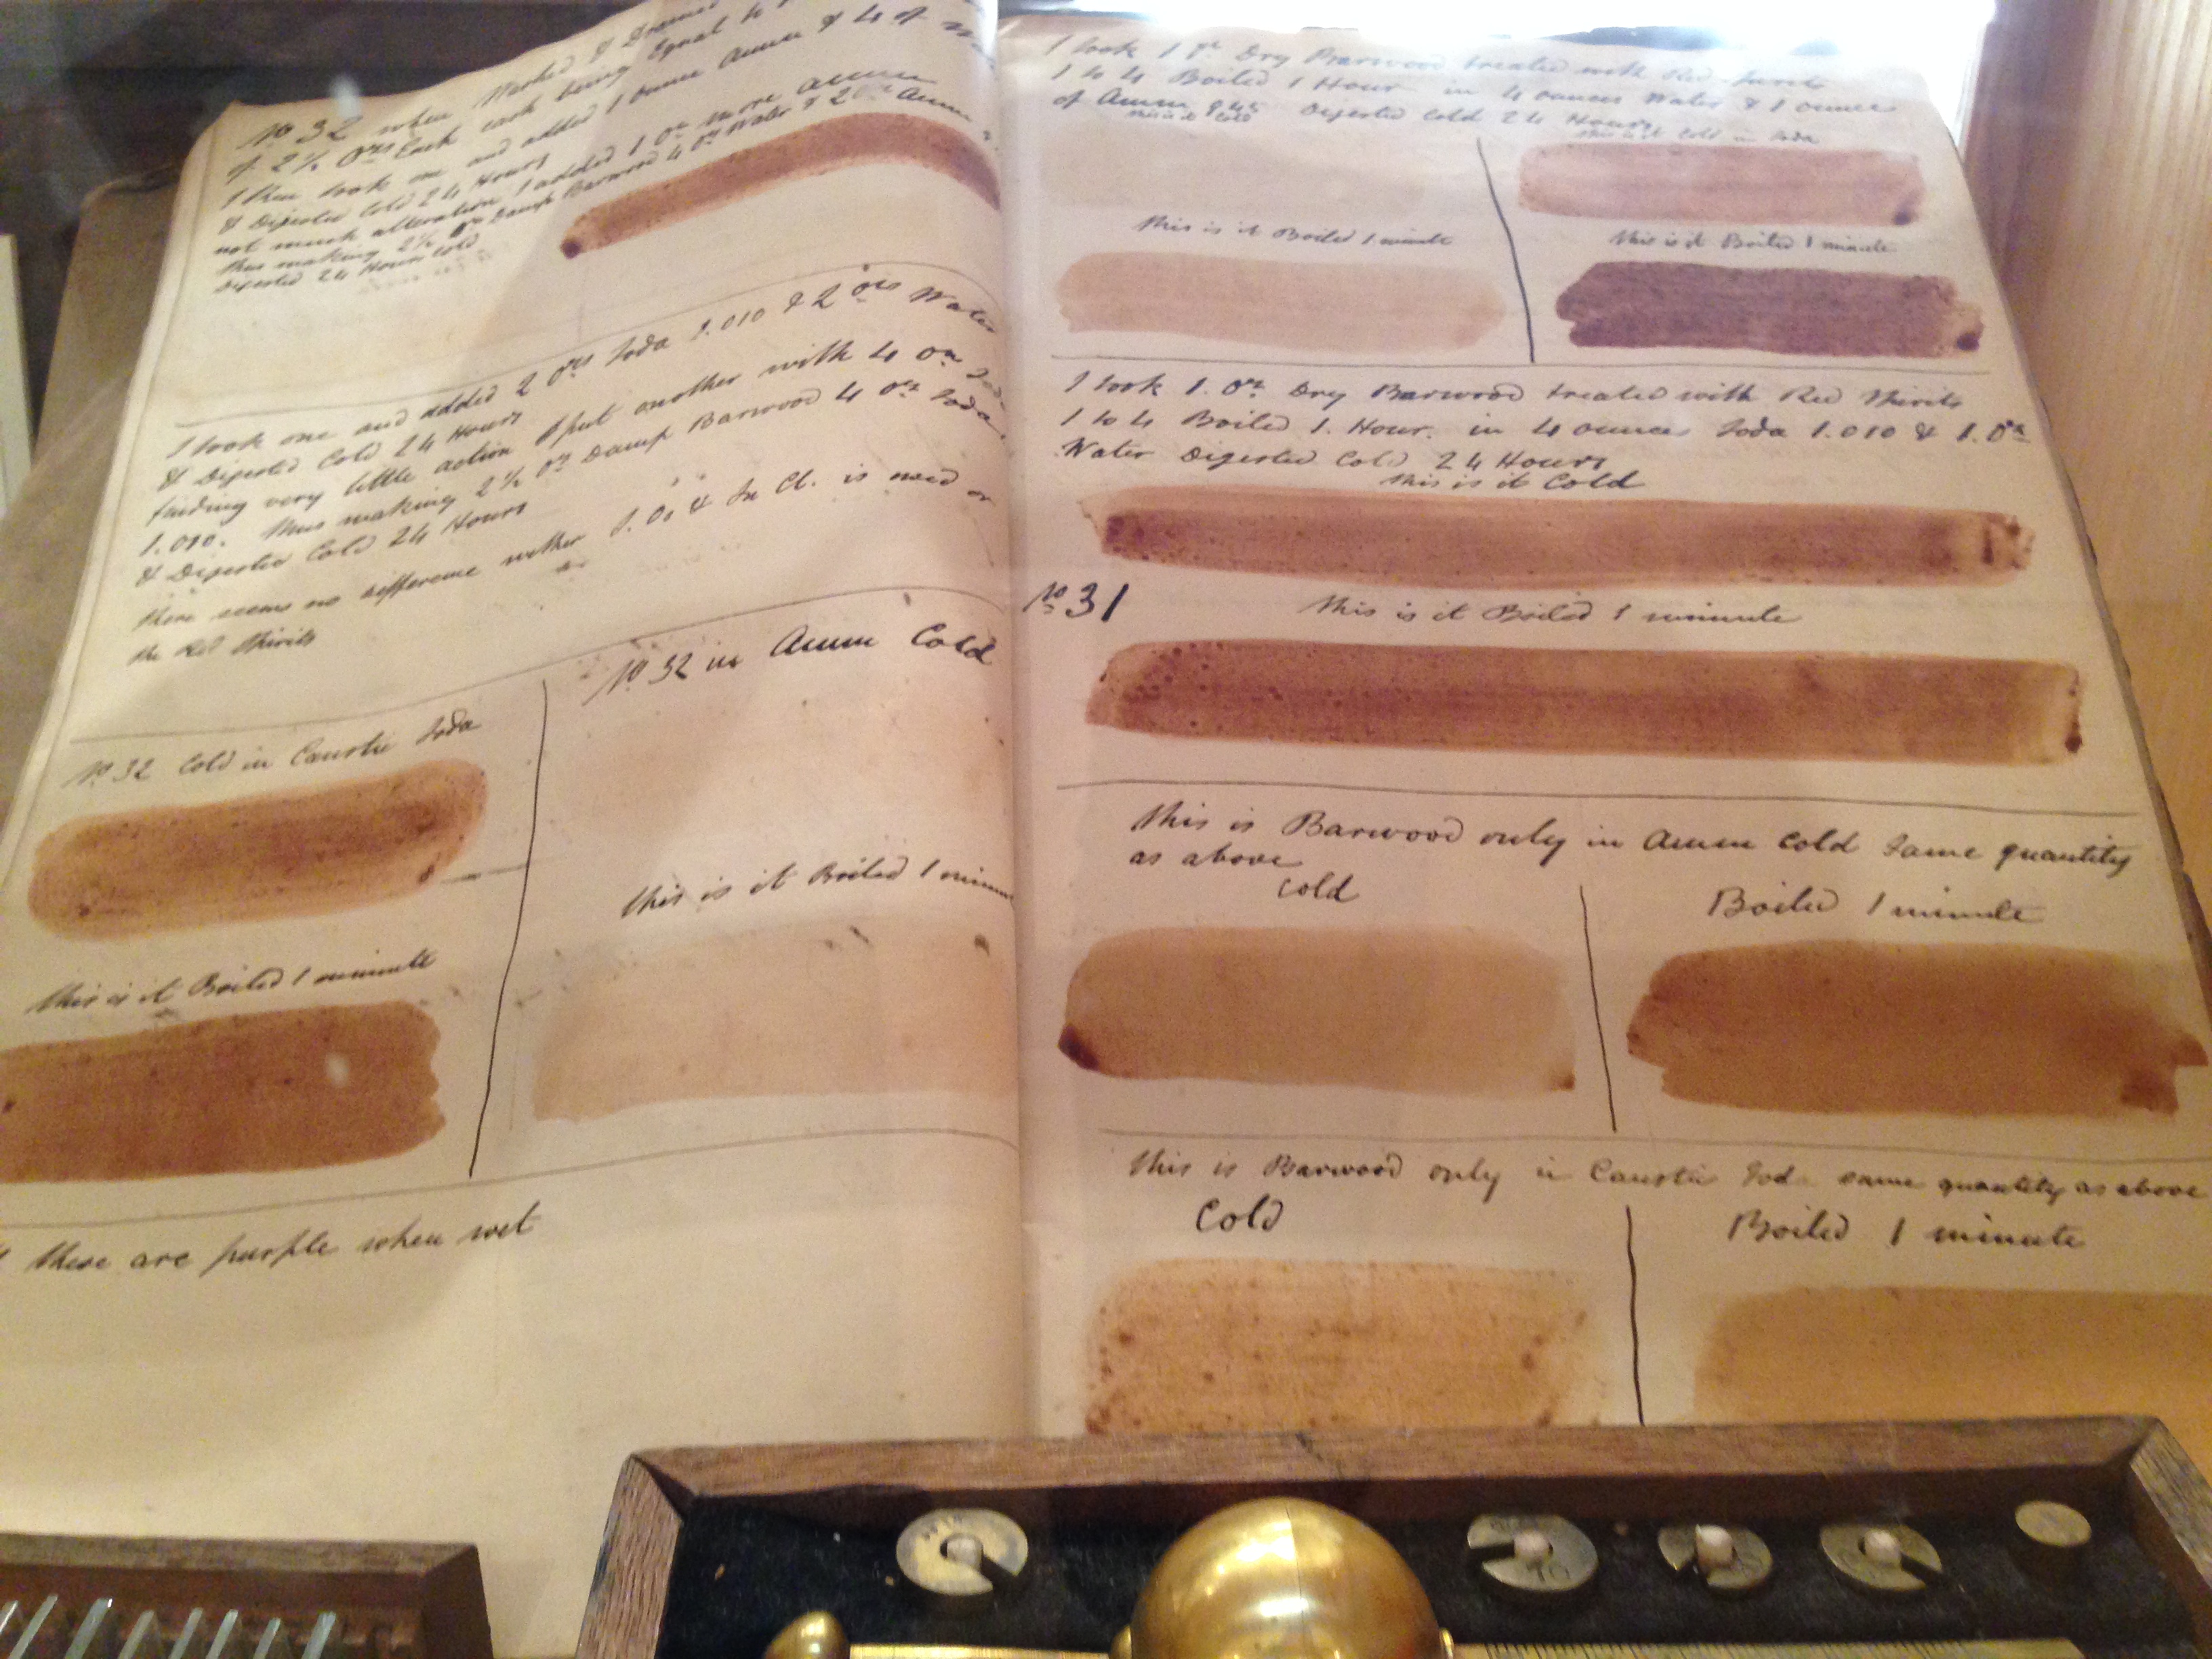 No 32 when Washed & Drained
of 2½ Ozs Each each being Equal to
I then took one and added 1 ounce Amm & 4 of
& Digested Cold 24 Hours
not much alteration I added 1 Oz More Amm
thus making 2½ Ozs Damp Barwood 4 Ozs Water & 2 Amm
Digested 24 Hours Cold
I took one and added 2 Ozs Soda 1.010 & 2 Ozs Water
& Digested Cold 24 Hours
finding very little action I put another with 4 Ozs Soda
1.010. thus making 2½ Oz Damp Barwood 4 Ozs Soda
& Digested Cold 24 Hours
there seems no difference wether S. Os & Cl. is used or
the Red Spirits
No 32 Cold in Caustic Soda
No 32 in Amm Cold
this is it Boiled 1 minute
this is it Boiled 1 minu
these are purple when wet
I took 1 Oz Dry Barwood treated with Red Spirits
1 to 4 Boiled 1 Hour in 4 ounces Water & 1 ounce
of Amm 945 Digested Cold 24 Hours
this is it Cold
this is it Cold in Soda
this is it Boiled 1 minute
this is it Boiled 1 minute
I took 1. Oz Dry Barwood treated with Red Spirits
1 to 4 Boiled 1. Hour. in 4 ounces Soda 1.010 & 1. Oz
Water Digested Cold 24 Hours
this is it Cold
No 31
this is it Boiled 1 minute
this is Barwood only in Amm Cold Same quantity
as above
Cold
Boiled 1 minute
this is Barwood only in Caustic Sod same quantity as above
Cold
Boiled 1 minute
10